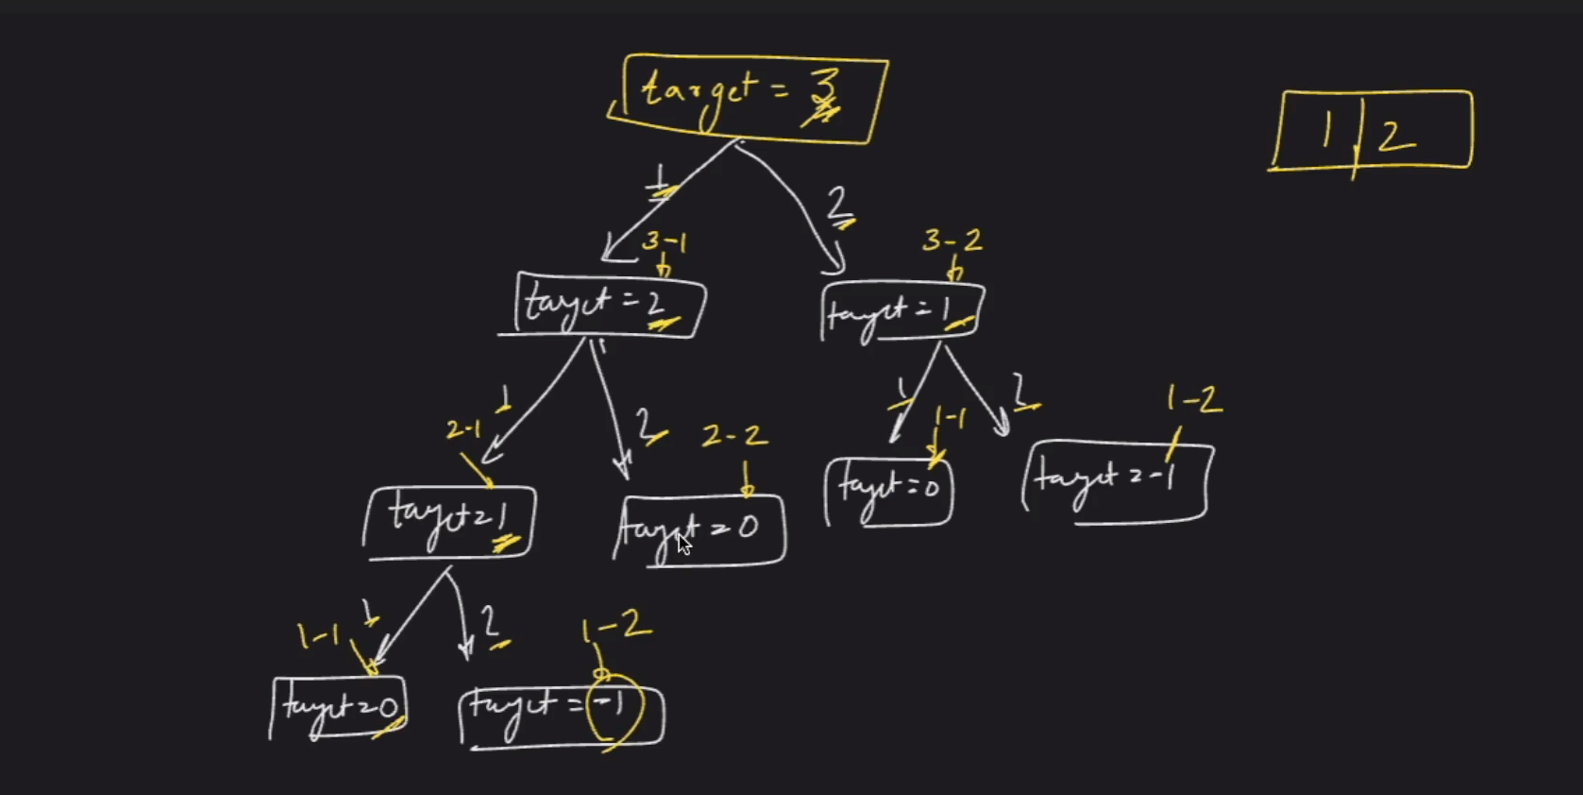 target = 3
1 | 2
1
2
3-1
3-2
target = 2
target = 1
1
2
1
2
1-2
2-1
2-2
1-1
target = 1
target = 0
target = 0
target = -1
1
2
1-1
1-2
target = 0
target = -1